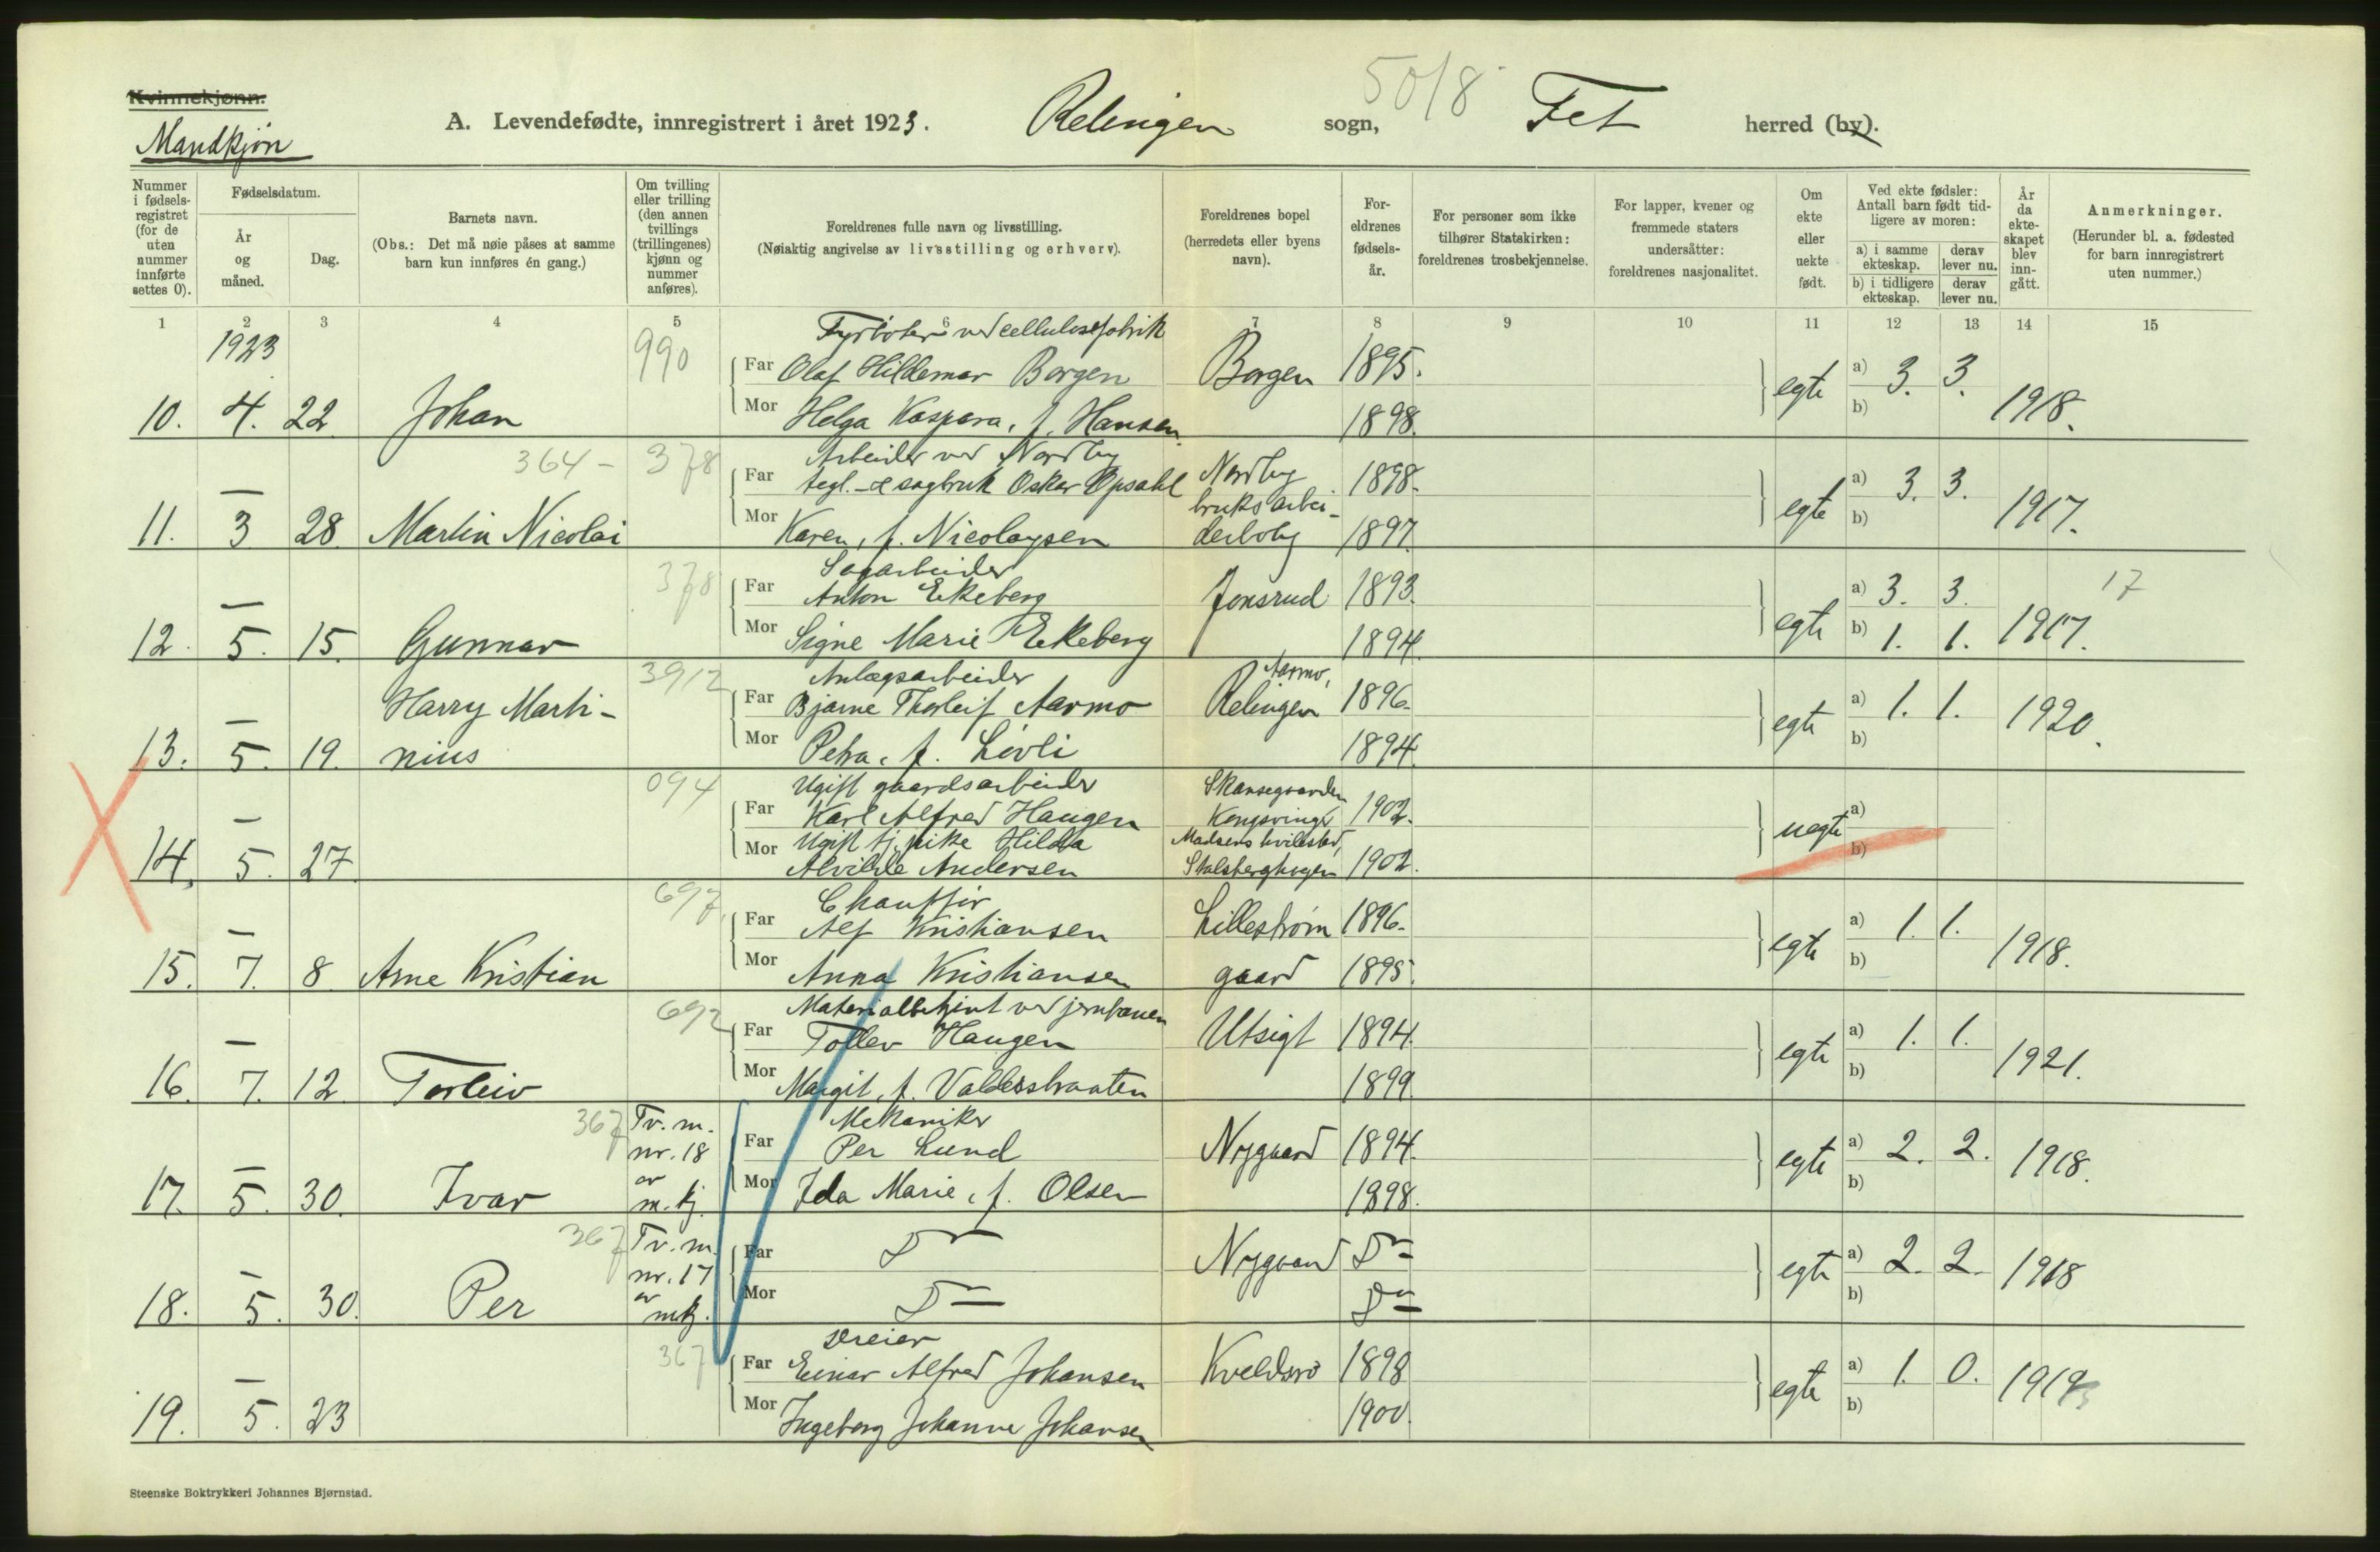 Kvinnekjønn.
Mandkjøn
A. Levendefødte, innregistrert i året 1923.
Relingen sogn,
50/8
Fet herred (by).
Nummer i fødsels-registret (for de uten nummer innførte settes 0).
Fødselsdatum.
År og måned.
Dag.
Barnets navn.
(Obs.: Det må nøie påses at samme barn kun innføres én gang.)
Om tvilling eller trilling (den annen tvillings (trillingenes) kjønn og nummer anføres).
Foreldrenes fulle navn og livsstilling.
(Nøiaktig angivelse av livsstilling og erhverv).
Foreldrenes bopel (herredets eller byens navn).
For-eldrenes fødsels-år.
For personer som ikke tilhører Statskirken: foreldrenes trosbekjennelse.
For lapper, kvener og fremmede staters undersåtter: foreldrenes nasjonalitet.
Om ekte eller uekte født.
Ved ekte fødsler: Antall barn født tid-ligere av moren:
a) i samme ekteskap.
derav lever nu.
b) i tidligere ekteskap.
derav lever nu.
År da ekte-skapet blev inn-gått.
Anmerkninger.
(Herunder bl. a. fødested for barn innregistrert uten nummer.)
1 2 3 4 5 6 7 8 9 10 11 12 13 14 15
1923
990
Fyrbøter ved cellulosefabrik
Far Olaf Hildemar Borgen Borgen 1895.
10. 4. 22 Johan
Mor Helga Kaspara, f. Hansen. 1898.
egte a) 3. 3.
b)
1918.
364 - 378
Arbeider ved Nordby
Far tegl.- & sagbruk Oskar Opsahl
Nordby bruks arbei-derbolig
1898.
11. 3 28 Martin Nicolai
Mor Karen, f. Nicolaysen 1897.
egte a) 3. 3.
b)
1917.
378
Sagarbeider
Far Anton Ekeberg Jonsrud 1893.
12. 5. 15. Gunnar
Mor Signe Marie Ekeberg 1894.
egte a) 3. 3.
b) 1. 1.
1917.
17
3912
Anlægsarbeider
Far Bjarne Thorleif Aarmo
Aarmo, Relingen 1896.
13. 5. 19. Harry Marti-
nius
Mor Petra, f. Løvli 1894.
egte a) 1. 1.
b)
1920.
094
Ugift gaardsarbeider
Far Karl Alfred Haugen
Skansegaarden Kongsvinger 1902.
14. 5. 27.
Mor Ugift tj.pike Hilda
Alvilde Andersen
Madsens hvilested,
1902.
uegte a)
b)
697
Chauffør
Far Alf Kristiansen Lillestrøm 1896.
15. 7. 8 Arne Kristian
Mor Anna Kristiansen gaard 1895.
egte a) 1. 1.
b)
1918.
692
Materialbetjent ved jernbanen
Far Tollev Haugen Utsigt 1894.
16. 7. 12 Torleiv
Mor Margit, f. Valderstraaten 1899.
egte a) 1. 1.
b)
1921.
367
Tv. m.
nr. 18
av
m. kj.
Mekaniker
Far Per Lund Nygaard 1894.
17. 5. 30. Ivar
Mor Ida Marie, f. Olsen 1898.
egte a) 2. 2.
b)
1918.
367
Tv. m.
nr. 17
av
mkj.
Far Do Nygaard Do
18. 5. 30. Per
Mor Do Do
egte a) 2. 2.
b)
1918
367
Dreier
Far Einar Alfred Johansen Kveldsro 1898
19. 5. 23
Mor Ingeborg Johanne Johansen 1900.
egte a) 1. 0.
b)
Steenske Boktrykkeri Johannes Bjørnstad.